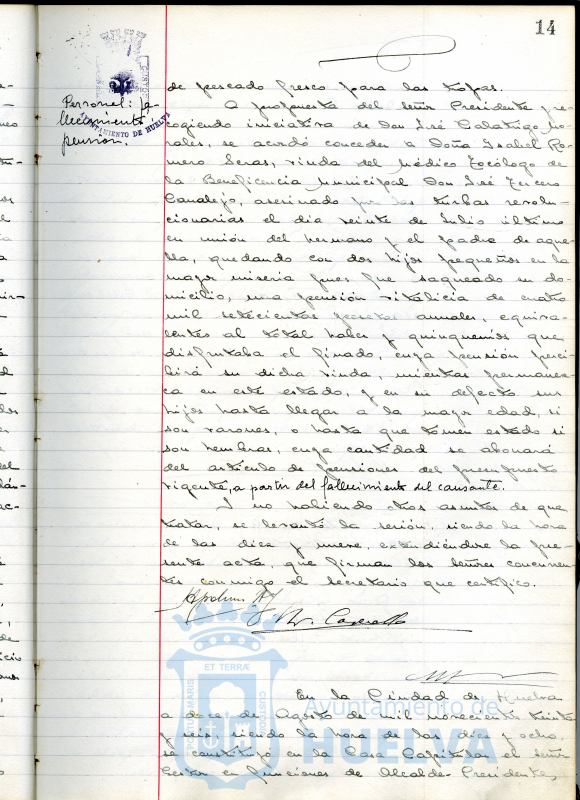 14
AYUNTAMIENTO DE HUELVA
Personal: fa-
llecimiento
pensión.
de pescado fresco para las tropas.
A propuesta del señor Presidente y re-
cogiendo iniciativa de Don José Calatrigo Mo-
rales, se acordó conceder a Doña Isabel Ro-
mero Seras, viuda del Médico Tocólogo de
la Beneficencia Municipal Don José Tercero
Canalejo, asesinado por las turbas revolu-
cionarias el día veinte de Julio último
en unión del hermano y el padre de aque-
lla, quedando con dos hijos pequeños en la
mayor miseria pues fue saqueado su do-
micilio, una pensión vitalicia de cuatro
mil setecientas pesetas anuales, equiva-
lentes al total haber y quinquenios que
disfrutaba el finado, cuya pensión perci-
birá su dicha viuda, mientras permanez-
ca en este estado, y en su defecto sus
hijos hasta llegar a la mayor edad, si
son varones, o hasta que tomen estado si
son hembras, cuya cantidad se abonará
del artículo de pensiones del presupuesto
vigente, a partir del fallecimiento del causante.
Y no habiendo otros asuntos de que
tratar, se levantó la sesión, siendo la hora
de las diez y nueve, extendiéndose la pre-
sente acta, que firman los señores concurren-
tes conmigo el secretario que certifico.
En la Ciudad de Huelva
a doce de Agosto de mil novecientos treinta
y seis, siendo la hora de las diez y ocho,
se constituyó en la Casa Capitular el señor
Gestor en funciones de Alcalde-Presidente,
PORTUS MARIS
ET TERRÆ
CUSTODIA
Ayuntamiento de
HUELVA